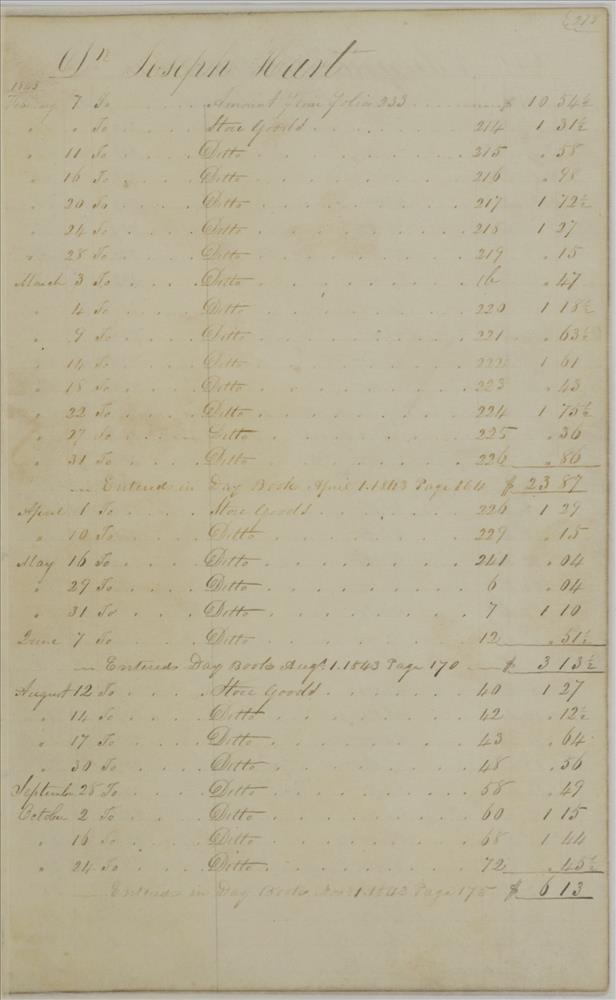 218
Dr. Joseph Hart
1843
February 7 To Amount from folio 233 $ 10 54½
" " To Store Goods 214 1 31½
" 11 To Ditto 215 . 58
" 16 To Ditto 216 . 98
" 20 To Ditto 217 1 72½
" 24 To Ditto 218 1 27
" 28 To Ditto 219 . 15
March 3 To Ditto Ib . 47
" 4 To Ditto 220 1 18½
" 9 To Ditto 221 . 63½
" 14 To Ditto 222 1 61
" 18 To Ditto 223 . 43
" 22 To Ditto 224 1 75½
" 27 To Ditto 225 . 36
" 31 To Ditto 226 . 86
Entered in Day Book April 1. 1843 Page 164 $ 23 87
April 1 To Store Goods 226 1 29
" 10 To Ditto 229 . 15
May 16 To Ditto 241 . 04
" 29 To Ditto 6 . 04
" 31 To Ditto 7 1 10
June 7 To Ditto 12 . 51½
Entered Day Book Augt 1. 1843 Page 170 $ 3 13½
August 12 To Store Goods 40 1 27
" 14 To Ditto 42 . 12½
" 17 To Ditto 43 . 64
" 30 To Ditto 48 . 56
September 28 To Ditto 58 . 49
October 2 To Ditto 60 1 15
" 16 To Ditto 68 1 44
" 24 To Ditto 72 . 45½
Entered in Day Book Nov 1. 1843 Page 175 $ 6 13